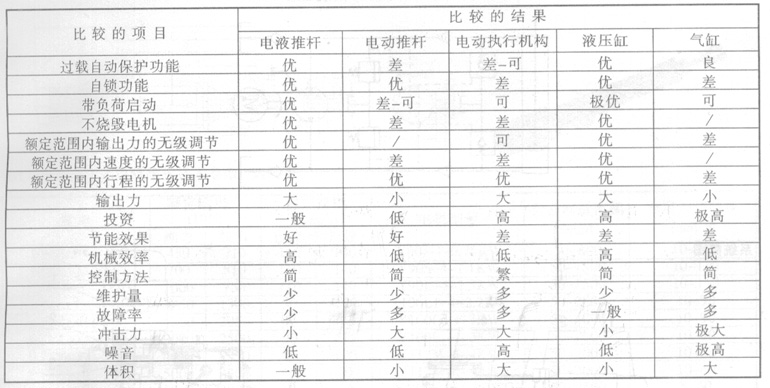 比较的项目 比较的结果
电液推杆 电动推杆 电动执行机构 液压缸 气缸
过载自动保护功能 优 差 差-可 优 良
自锁功能 优 优 差 优 差
带负荷启动 优 差-可 可 极优 可
不烧毁电机 优 差 差 优 /
额定范围内输出力的无级调节 优 / 可 优 差
额定范围内速度的无级调节 优 差 差 优 /
额定范围内行程的无级调节 优 优 优 优 差
输出力 大 小 大 大 小
投资 一般 低 高 高 极高
节能效果 好 好 差 差 差
机械效率 高 低 低 高 低
控制方法 简 简 繁 简 简
维护量 少 少 多 少 多
故障率 少 多 多 一般 多
冲击力 小 大 大 小 极大
噪音 低 低 高 低 极高
体积 一般 小 大 小 大